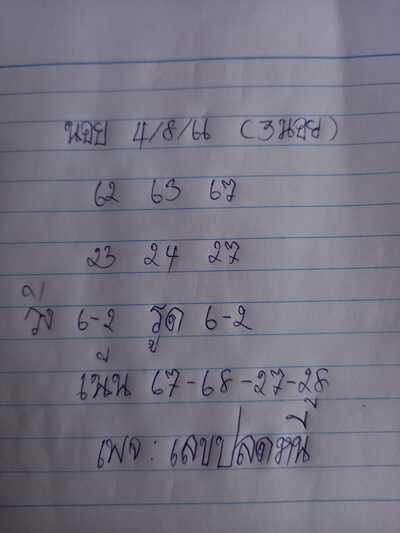 หนอย 4/8/66 (3หนอย)
62 63 67
23 24 27
วิ่ง 6-2 รูด 6-2
เน้น 67-68-27-28
เพจ : เลขปลดหนี้